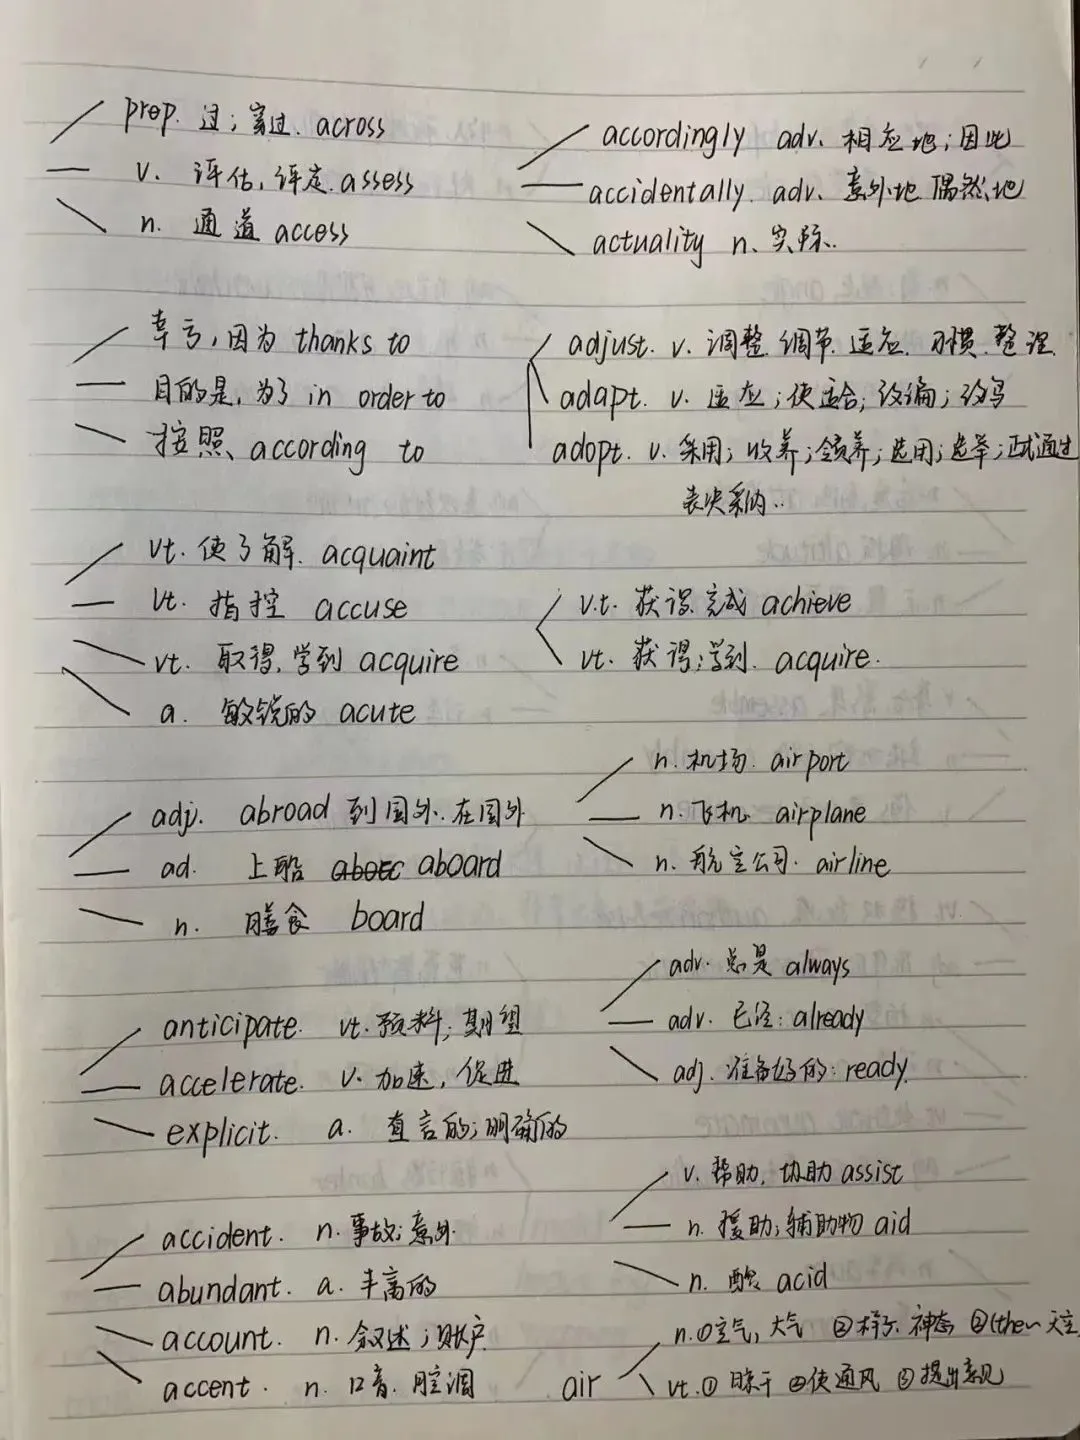 prep. 过；穿过. across
v. 评估，评定. assess
n. 通道 access
accordingly adv. 相应地；因此
accidentally. adv. 意外地 偶然地
actuality n. 实际.
幸亏，因为 thanks to
目的是，为了 in order to
按照、according to
adjust. v. 调整.调节.适应.习惯.整理
adapt. v. 适应；使适合；改编；改写
adopt. v. 采用；收养；领养；选用；选举；正式通过
表决采纳..
vt. 使了解. acquaint
vt. 指控 accuse
vt. 取得，学到 acquire
a. 敏锐的 acute
v.t. 获得.完成 achieve
vt. 获得；学到. acquire.
adj. abroad 到国外.在国外
ad. 上船 aboard
n. 膳食 board
n. 机场. airport
n. 飞机. airplane
n. 航空公司. airline
anticipate. vt. 预料；期望
accelerate. v. 加速，促进
explicit. a. 直言的；明确的
adv. 总是 always
adv. 已经：already
adj. 准备好的：ready.
accident. n. 事故；意外.
abundant. a. 丰富的
account. n. 叙述；账户
accent. n. 口音.腔调
v. 帮助，协助 assist
n. 援助；辅助物 aid
n. 酸 acid
air
n.①空气，大气 ②样子.神态 ③(the~天空
vt.① 晾干 ②使通风 ③提出意见